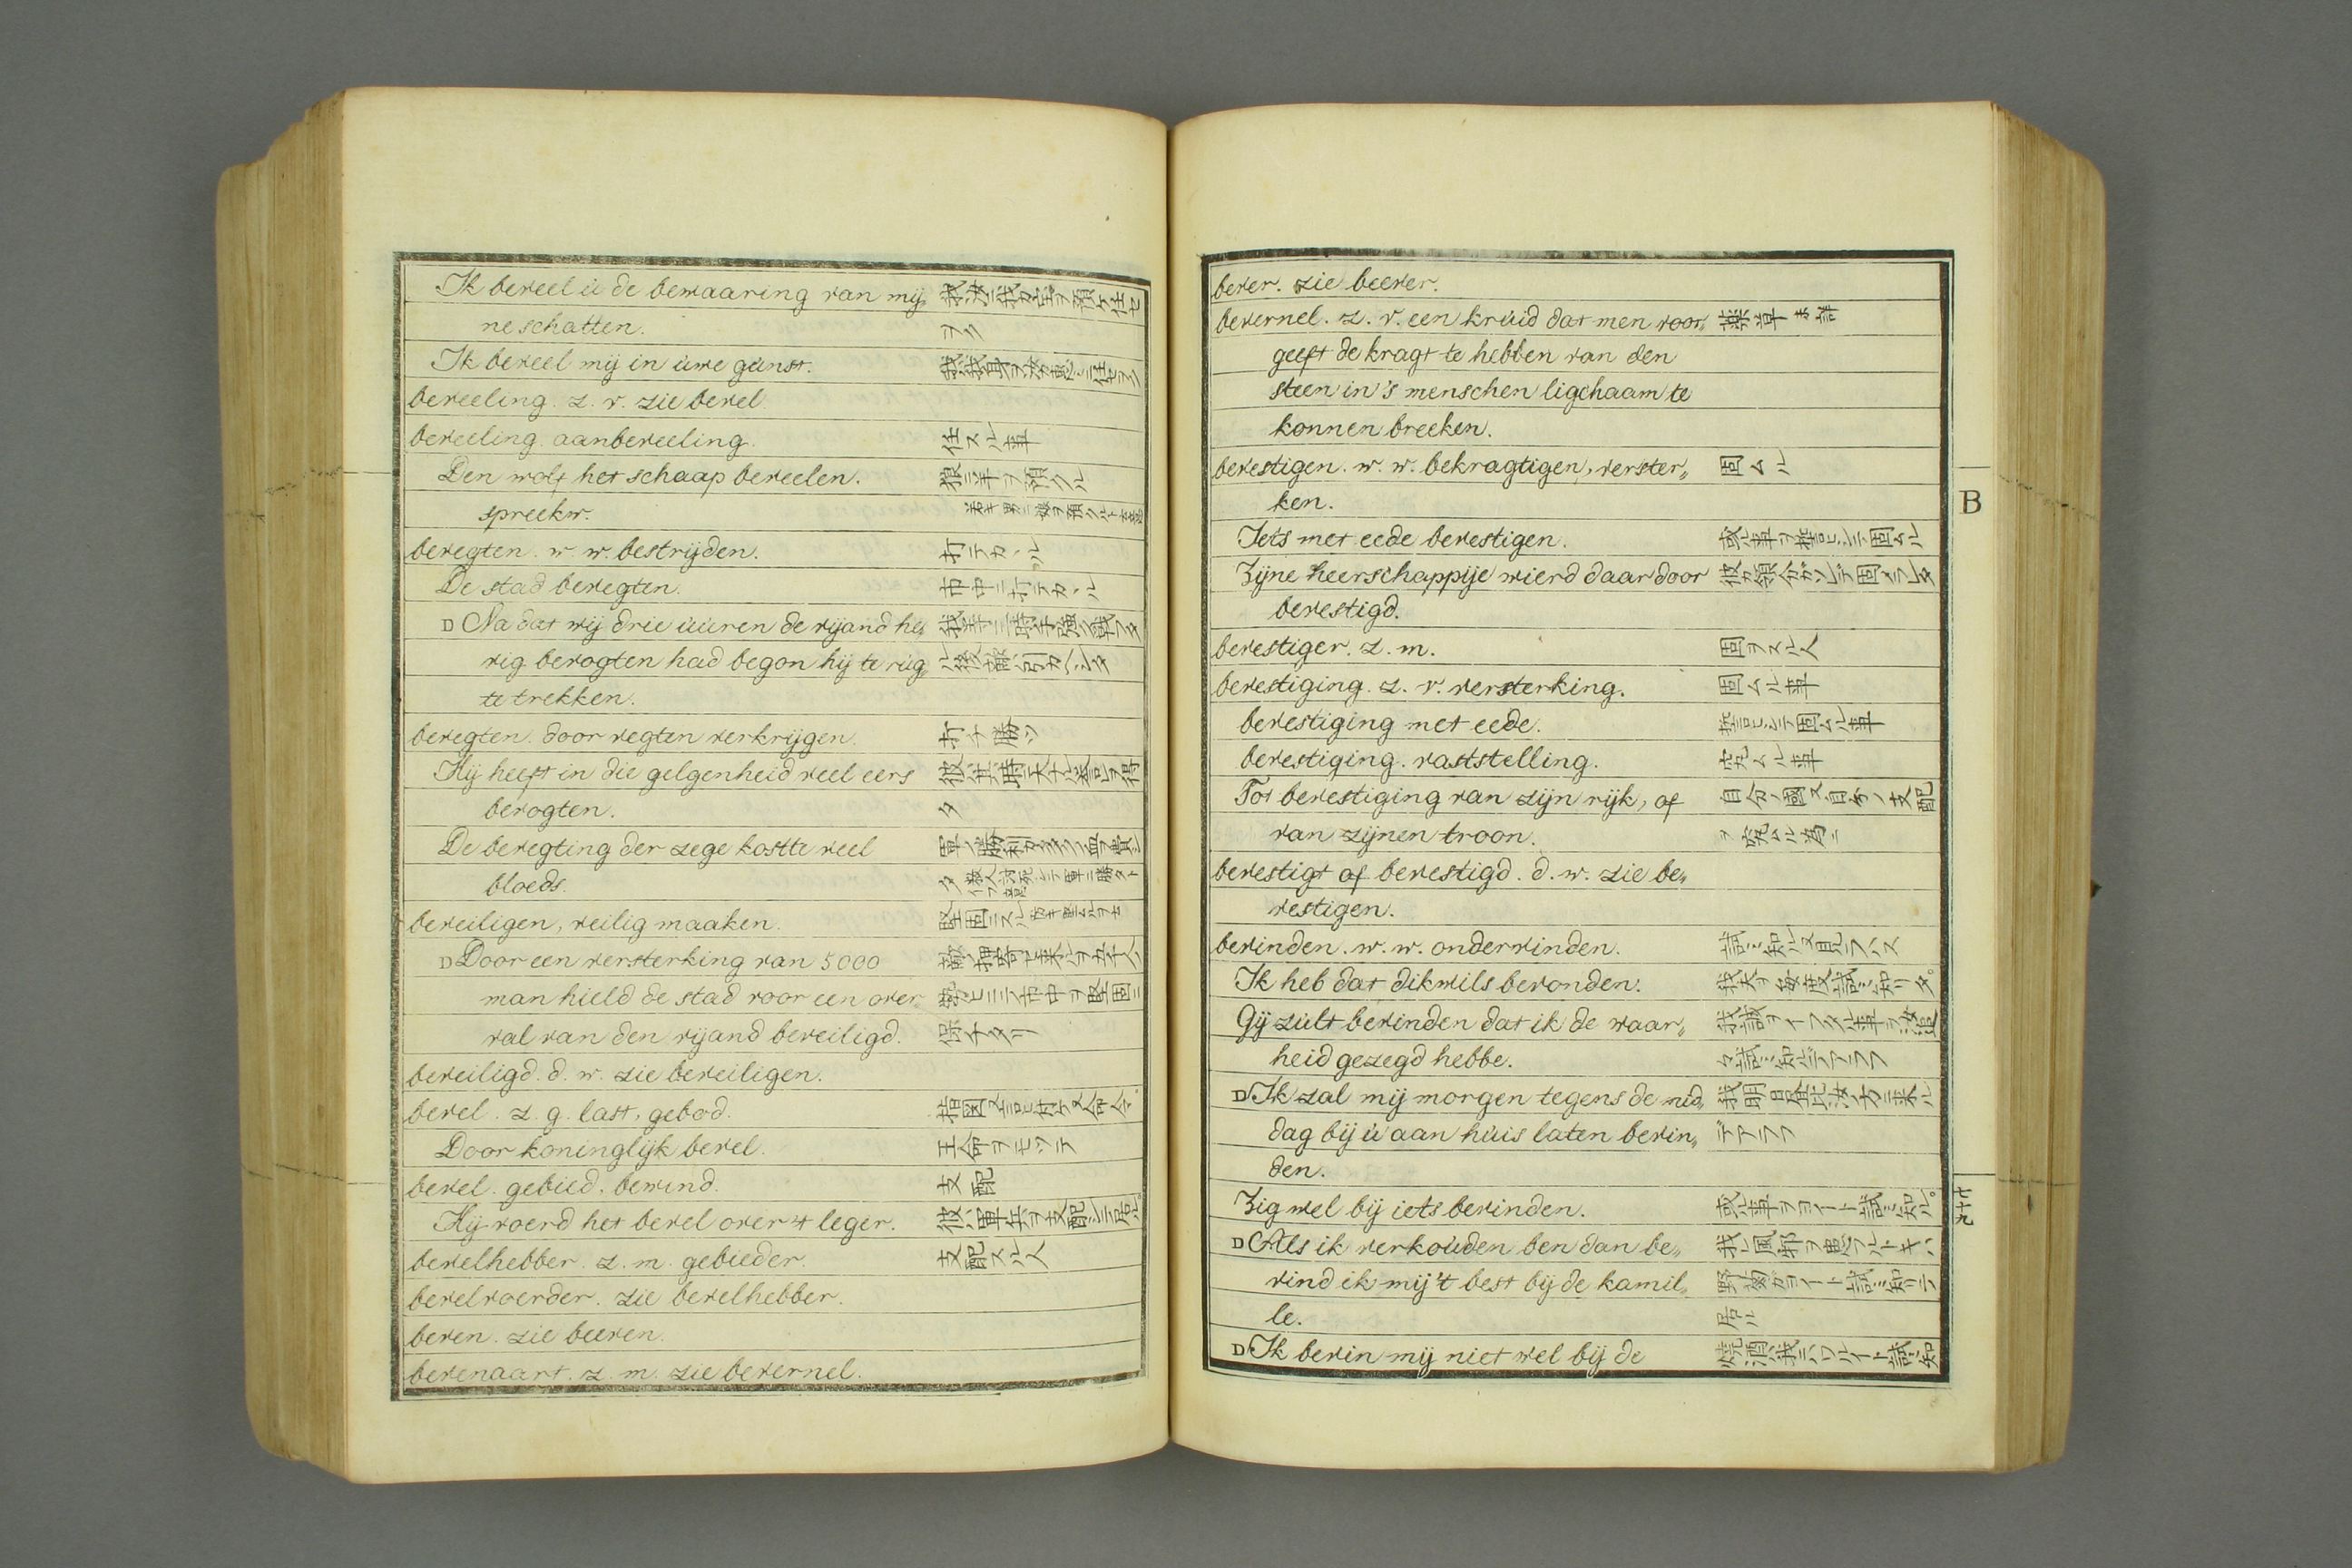 Ik beveel ú de bewaaring van mij„ 我汝ニ我カ宝ヲ預ケ任セ
ne schatten. ヲク
Ik beveel mij in úwe gúnst.
beveeling. z. v. zie bevel
beveeling. aanbeveeling. 任スル事
Den wolf het schaap beveelen. 狼ニ羊ヲ預クル
spreekw.
bevegten. w. w. bestrijden. 打テカヽル
De stad bevegten. 市中ニ打テカヽル
D Na dat wij drie úúren de vijand he„
vig bevogten had begon hij te rúg„ ル後敵引カヘシタ
te trekken.
bevegten. door vegten verkrijgen. 打チ勝ツ
Hij heeft in die gelgenheid veel eers
bevogten. タ
De bevegting der zege kostte veel
bloeds.
beveiligen, veilig maaken. 堅固ニスル
D Door een versterking van 5000
man hield de stad voor een over„
val van den vijand beveiligd. 保チタリ
beveiligd. d. w. zie beveiligen.
bevel. z. g. last, gebod. 指図又言ヒ付ケ又命令
Door koninglijk bevel. 王命ヲモツテ
bevel. gebied. bewind. 支配
Hij voerd het bevel over 't leger. 彼ハ軍兵ヲ支配シテ居ル。
bevelhebber. z. m. gebieder. 支配スル人
bevelvoerder. zie bevelhebber.
beven. zie beeven.
bevenaart. z. m. zie bevernel.
bever. zie beever.
bevernel. z. v. een krúid dat men voor„ 薬草
geeft de kragt te hebben van den
steen in 's menschen ligchaam te
konnen breeken.
bevestigen. w. w. bekragtigen, verster„ 固ムル
ken.
Iets met eede bevestigen. 或ル事ヲ誓ヒシテ固ムル
Zijne heerschappije wierd daar door 彼カ領分カソレデ固メラレタ
bevestigd.
bevestiger. z. m. 固ヲスル人
bevestiging. z. v. versterking. 固ムル事
bevestiging met eede. 誓ヒシテ固ムル事
bevestiging. vaststelling. 定ムル事
Tot bevestiging van zijn rijk, of 自分ノ國又自分ノ支配
van zijnen troon. ヲ定ムル為ニ
bevestigt of bevestigd. d. w. zie be„
vestigen.
bevinden. w. w. ondervinden. 試ミ知ル又見ラハス
Ik heb dat dikwils bevonden. 我夫ヲ毎度試ミ知リタ。
Gij zúlt bevinden dat ik de waar„ 我誠ヲイフタル事ヲ汝追
heid gezegd hebbe. 々試ミ知ルデアラフ
D Ik zal mij morgen tegens de mid„ 我明日昼比汝ノ方ニ来ル
dag bij ú aan húis laten bevin„ デアラフ
den.
Zig wel bij iets bevinden. 或ル事ヲヨイト試ミ知ル。
D Als ik verkoúden ben dan be„ 我レ風邪ヲ患フルトキハ
vind ik mij 't best bij de kamil„
le. 居ル
D Ik bevin mij niet wel bij de 焼酒ハ我ニハワルイト試ミ知
B